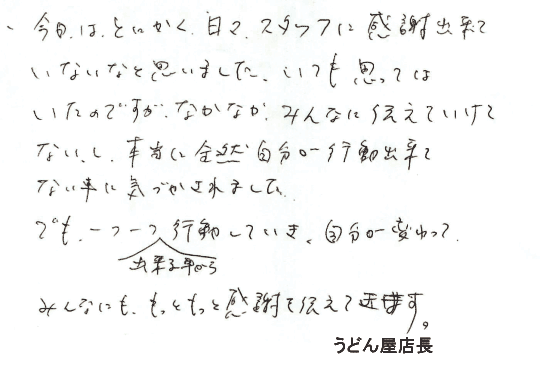 、今回は、とにかく、日々、スタッフに感謝出来て
いないなと思いました。いつも思っては
いたのですが、なかなか、みんなに伝えていけて
ない、し、本当に全然自分が行動出来て
ない事に気づかされました。
でも、一つ一つ行動していき、自分が変わって、
出来る事から
みんなにも、もっともっと感謝を伝えて
ます。
うどん屋店長